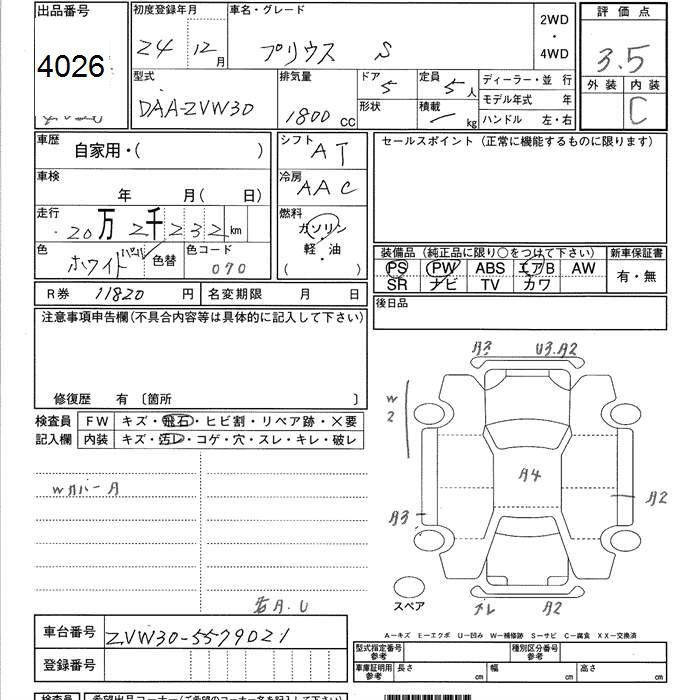 出品番号
4026
初度登録年月
24 12月
車名・グレード
プリウス S
2WD
・
4WD
評価点
3.5
外装 内装
C
型式
DAA-ZVW30
排気量
1800 cc
ドア
5
定員
5人
形状
積載
kg
ディーラー・並 行
モデル年式 年
ハンドル 左・右
車歴
自家用・( )
車検
年 月( 日)
走行
20万2千232km
色
ホワイトパール
色替
色コード
070
シフト
AT
冷房
AAC
燃料
ガソリン
軽・油
( )
セールスポイント (正常に機能するものに限ります)
装備品 (純正品に限り○をつけて下さい)
新車保証書
PS PW ABS エアB AW
SR ナビ TV カワ
有・無
R券 11820 円
名変期限 月 日
後日品
注意事項申告欄(不具合内容等は具体的に記入して下さい)
修復歴 有 〔箇所 〕
検査員
記入欄
FW キズ・飛石・ヒビ割・リペア跡・×要
内装 キズ・汚レ・コゲ・穴・スレ・キレ・破レ
WカバーA
A2 U3.A2
W
2
A4
A3
A2
スペア
A2
A-キズ E-エクボ U-凹み W-補修跡 S-サビ C-腐食 XX-交換済
車台番号
ZVW30-5579021
登録番号
型式指定番号
参考
種別区分番号
参考
車庫証明用
参考
長さ cm
幅 cm
高さ cm
検査員
希望出品コーナー(ご希望のコーナー名を記入下さい)